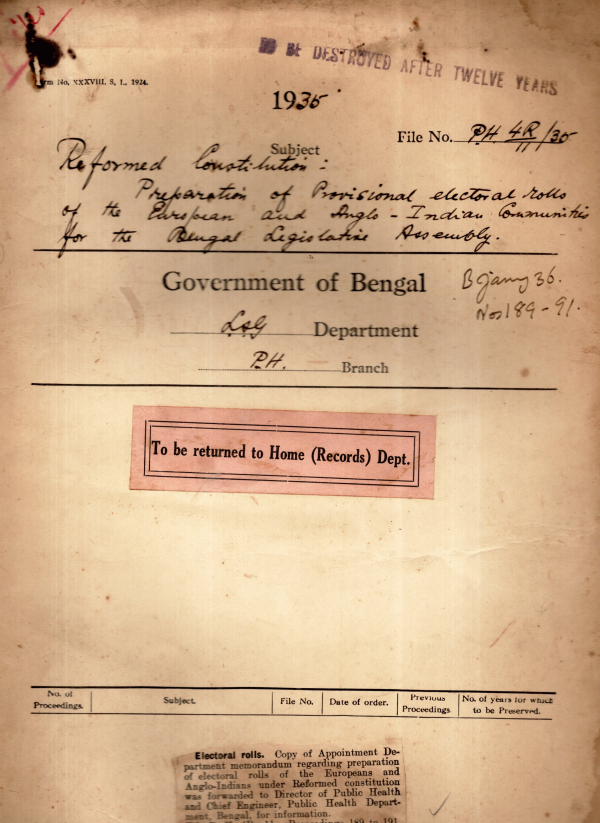 TO BE DESTROYED AFTER TWELVE YEARS
Form No. XXXVIII, S. I., 1924.
1935
File No. P.H. 4R/11/35
Subject
Reformed Constitution :
Preparation of Provisional electoral rolls
of the European and Anglo-Indian Communities
for the Bengal Legislative Assembly.
Government of Bengal
B Jany 36.
Nos 189 - 91.
L.S.G Department
P.H. Branch
To be returned to Home (Records) Dept.
No. of Proceedings. Subject. File No. Date of order. Previous Proceedings No. of years for which to be Preserved.
Electoral rolls. Copy of Appointment De-
partment memorandum regarding preparation
of electoral rolls of the Europeans and
Anglo-Indians under Reformed constitution
was forwarded to Director of Public Health
and Chief Engineer, Public Health Depart-
ment, Bengal, for information.
Proceedings 189 to 191